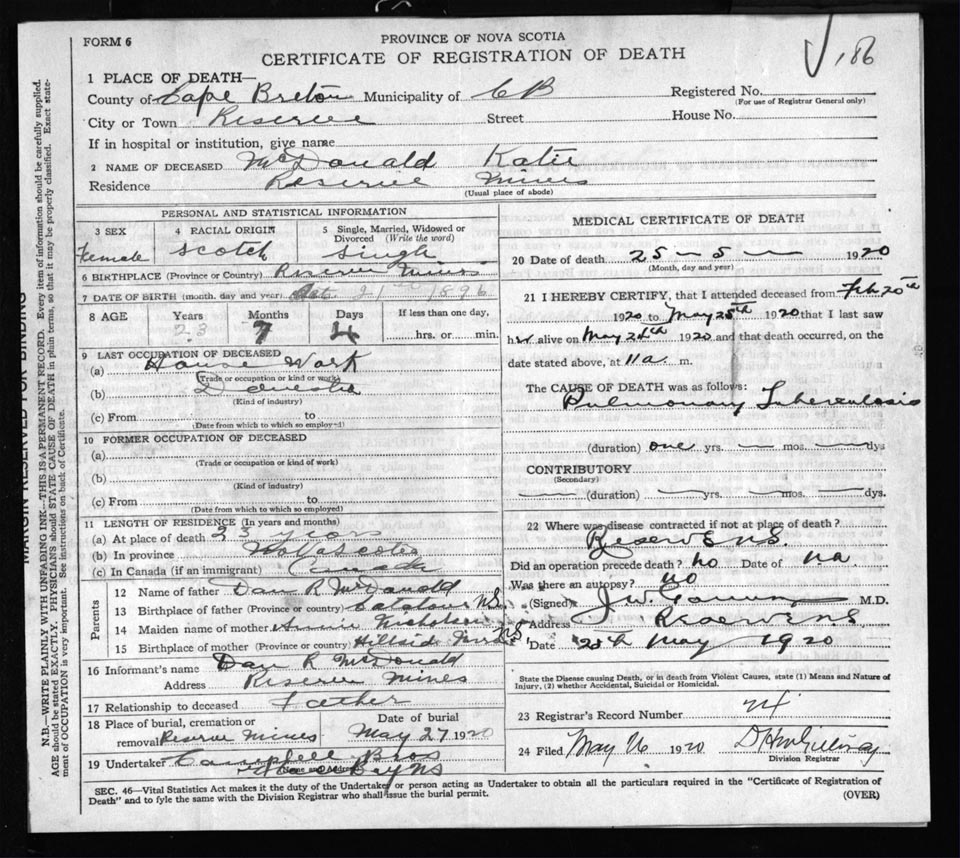 FORM 6
PROVINCE OF NOVA SCOTIA
CERTIFICATE OF REGISTRATION OF DEATH
186
1 PLACE OF DEATH—
County of Cape Breton Municipality of CB Registered No.
(For use of Registrar General only)
City or Town Reserve Street House No.
If in hospital or institution, give name
2 NAME OF DECEASED McDonald Katie
Residence Reserve Mines
(Usual place of abode)
PERSONAL AND STATISTICAL INFORMATION
3 SEX 4 RACIAL ORIGIN 5 Single, Married, Widowed or Divorced (Write the word)
Female Scotch Single
6 BIRTHPLACE (Province or Country) Reserve Mines
7 DATE OF BIRTH (month, day and year) Oct. 21 1896
8 AGE Years Months Days If less than one day,
23 7 4 hrs. or min.
9 LAST OCCUPATION OF DECEASED
(a) House Work
(Trade or occupation or kind of work)
(b) Domestic
(Kind of industry)
(c) From to
(Date from which to which so employed)
10 FORMER OCCUPATION OF DECEASED
(a)
(Trade or occupation or kind of work)
(b)
(Kind of industry)
(c) From to
(Date from which to which so employed)
11 LENGTH OF RESIDENCE (In years and months)
(a) At place of death 23 years
(b) In province Nova Scotia
(c) In Canada (if an immigrant) Canada
Parents
12 Name of father Dan R McDonald
13 Birthplace of father (Province or country) NS
14 Maiden name of mother Annie Nicholson
15 Birthplace of mother (Province or country) Hillside NS
16 Informant's name Dan R McDonald
Address Reserve Mines
17 Relationship to deceased Father
18 Place of burial, cremation or removal Reserve Mines Date of burial May 27 1920
19 Undertaker Campbell Bros
(Name and Address) Bay NS
MEDICAL CERTIFICATE OF DEATH
20 Date of death 25 — 5 — 1920
(Month, day and year)
21 I HEREBY CERTIFY, that I attended deceased from Feb 20th
1920 to May 25th 1920 that I last saw
her alive on May 24th 1920 and that death occurred, on the
date stated above, at 11 a m.
The CAUSE OF DEATH was as follows:
Pulmonary Tuberculosis
(duration) one yrs. — mos. — dys
CONTRIBUTORY
(Secondary)
— (duration) — yrs. — mos. — dys.
22 Where was disease contracted if not at place of death?
Reserve NS.
Did an operation precede death? no Date of na
Was there an autopsy? no
(Signed) J W M.D.
Address Reserve NS
Date May 1920
State the Disease causing Death, or in death from Violent Causes, state (1) Means and Nature of Injury, (2) whether Accidental, Suicidal or Homicidal.
23 Registrar's Record Number
24 Filed May 26 1920
Division Registrar
SEC. 46—Vital Statistics Act makes it the duty of the Undertaker or person acting as Undertaker to obtain all the particulars required in the "Certificate of Registration of
Death" and to fyle the same with the Division Registrar who shall issue the burial permit. (OVER)
MARGIN RESERVED FOR BINDING
N.B.—WRITE PLAINLY WITH UNFADING INK—THIS IS A PERMANENT RECORD. Every item of information should be carefully supplied.
AGE should be stated EXACTLY. PHYSICIANS should STATE CAUSE OF DEATH in plain terms, so that it may be properly classified. Exact state-
ment of OCCUPATION is very important. See instructions on back of Certificate.